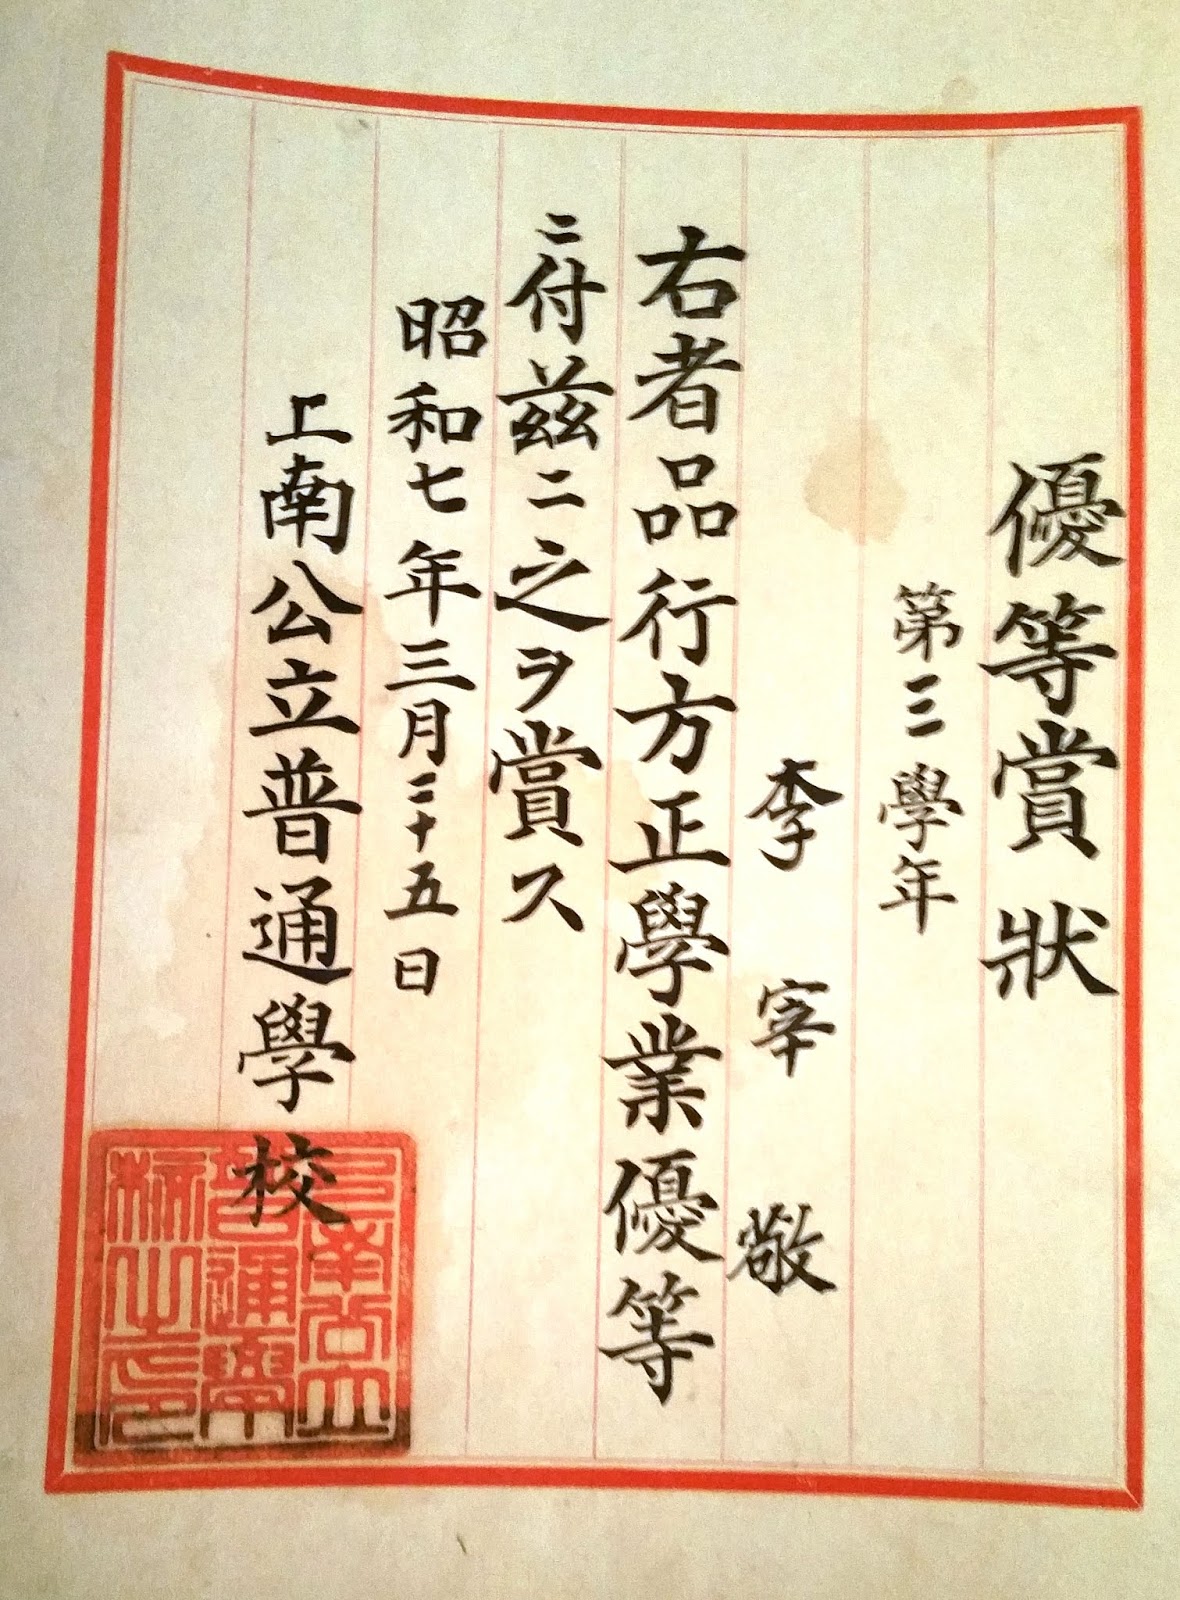 優等賞狀
第三學年
李宰敬
右者品行方正學業優等
ニ付茲ニ之ヲ賞ス
昭和七年三月二十五日
上南公立普通學校
上南公立
普通學
校之印